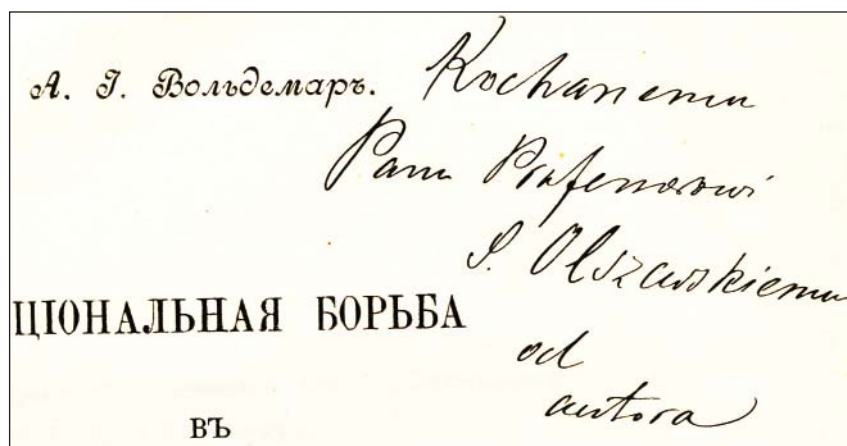 А. І. Вольдемаръ.
Kochanemu
Panu Profesorowi
S. Olszewskiemu
od
autora
ЦІОНАЛЬНАЯ БОРЬБА
ВЪ